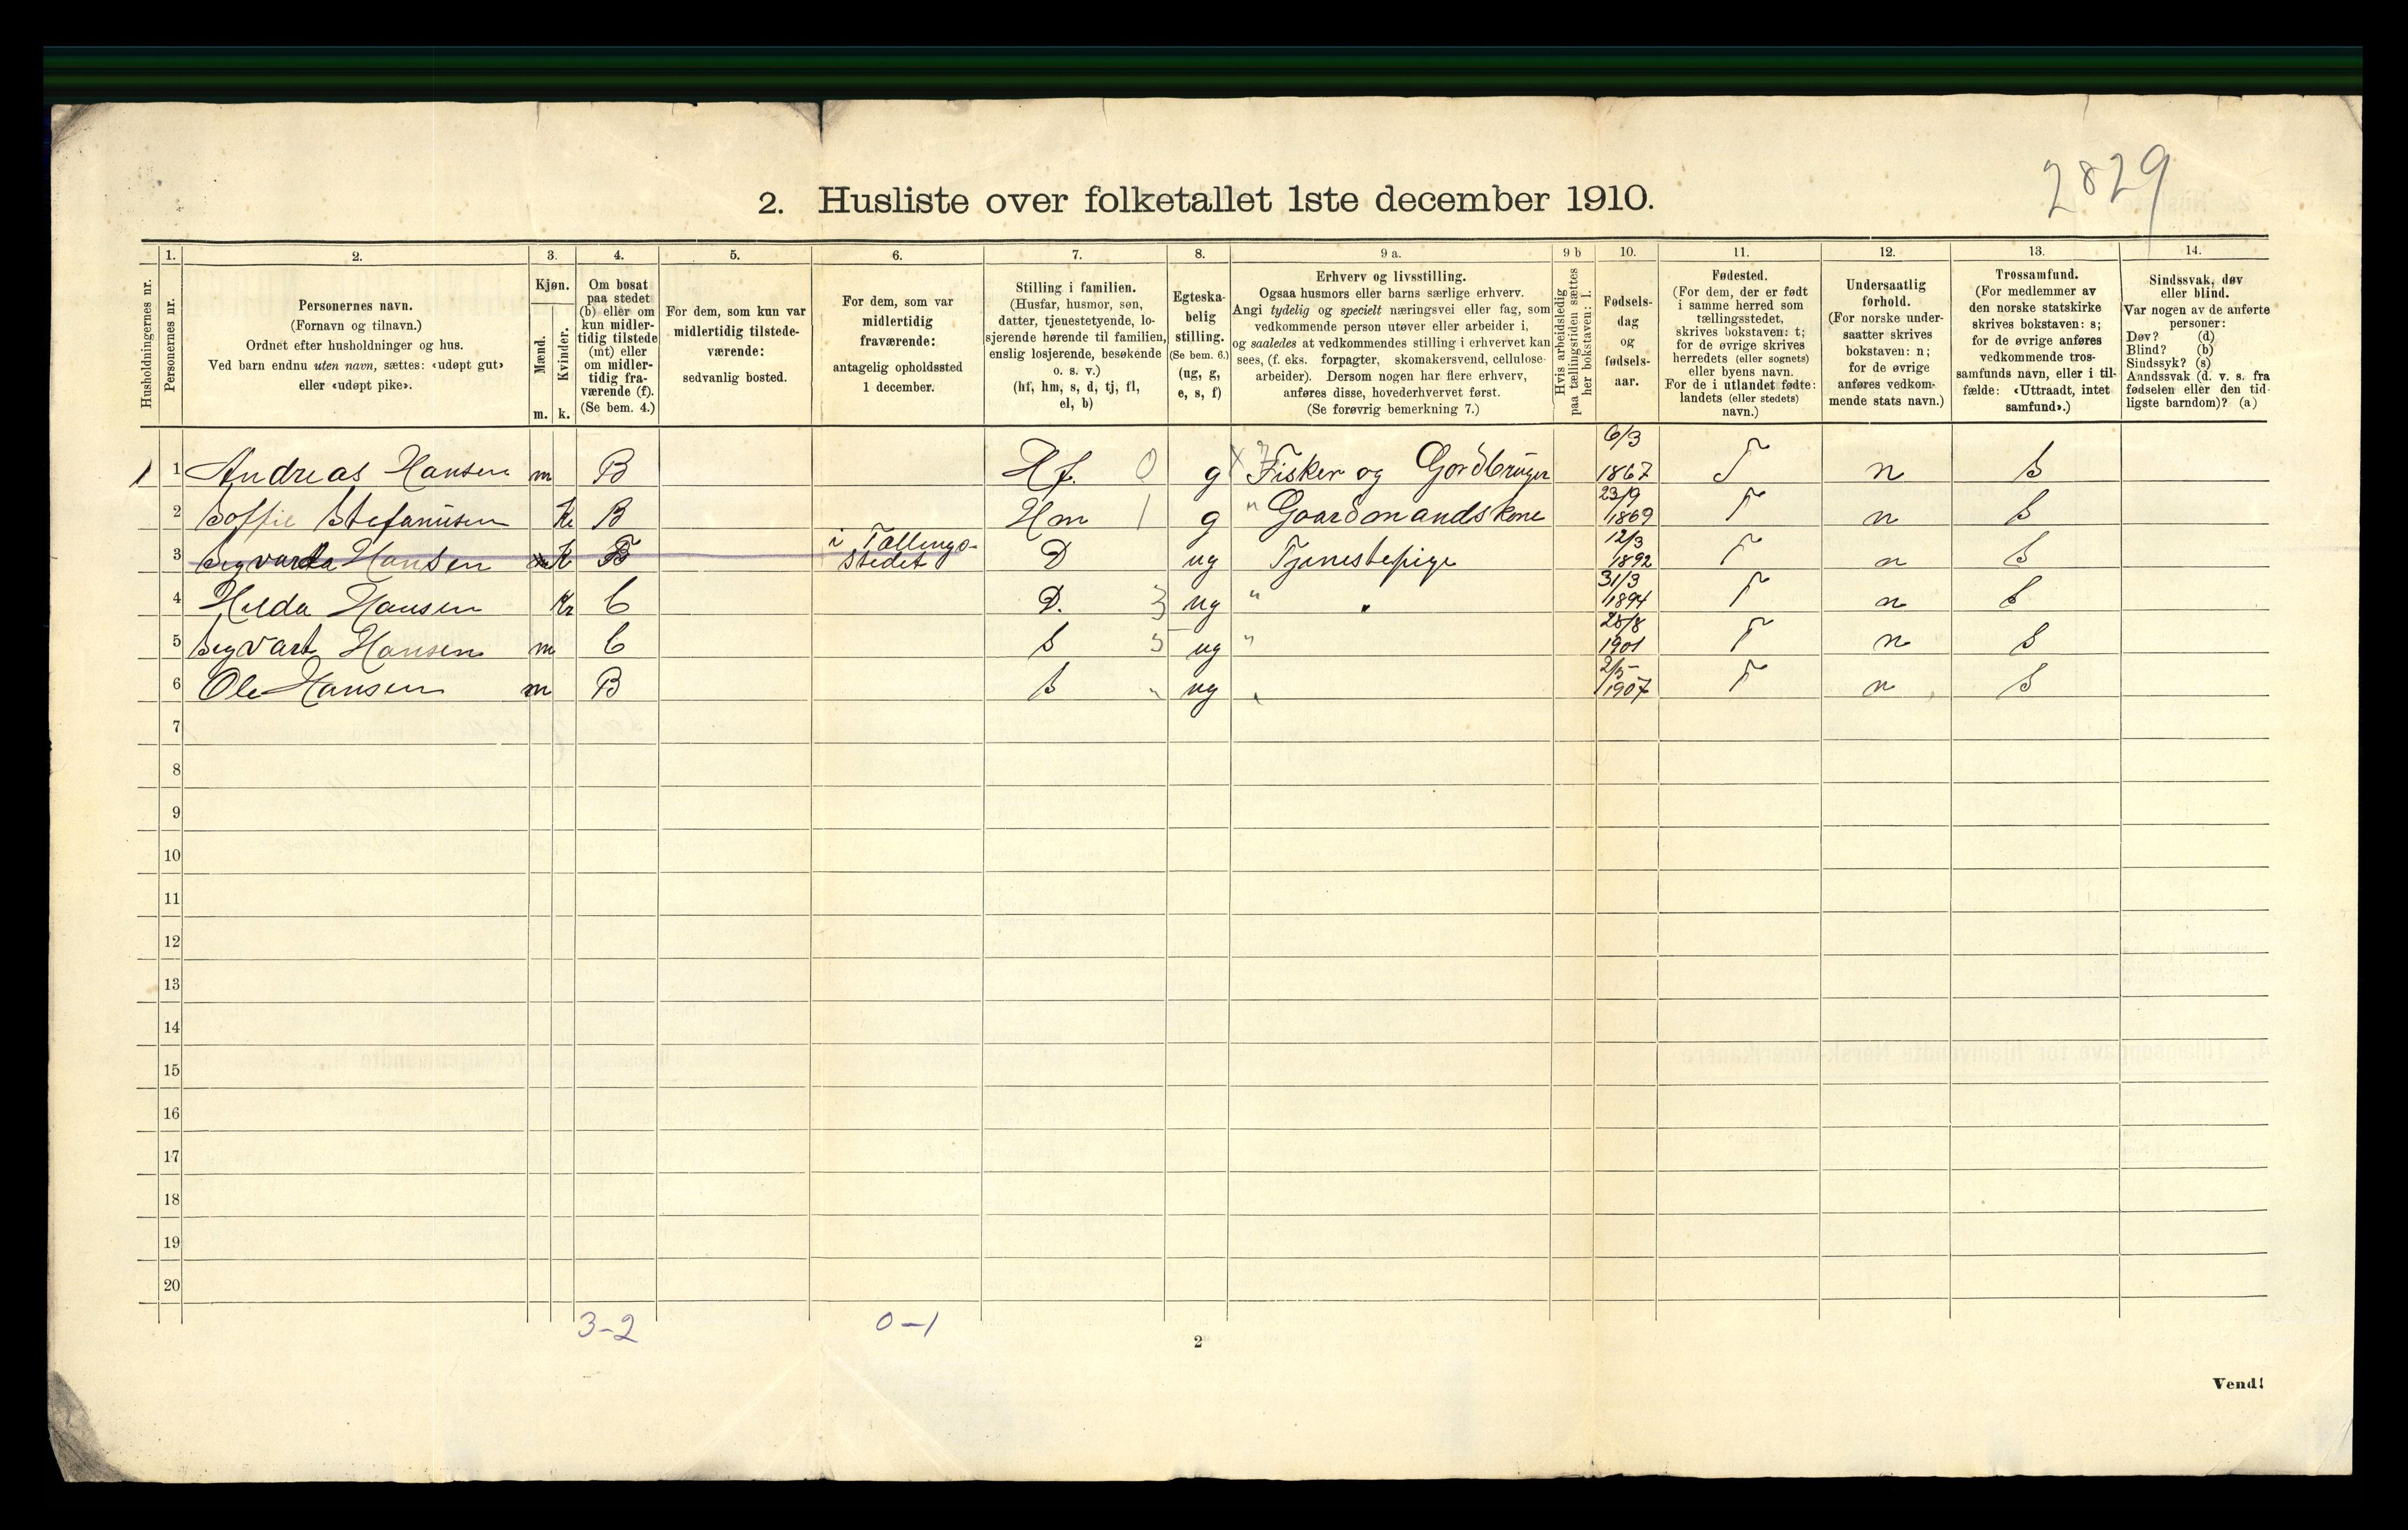 2829
2. Husliste over folketallet 1ste december 1910.
Husholdningernes nr.
1.
Personernes nr.
2.
Personernes navn.
(Fornavn og tilnavn.)
Ordnet efter husholdninger og hus.
Ved barn endnu uten navn, sættes: «udøpt gut»
eller «udøpt pike».
3.
Kjøn.
Mænd.
Kvinder.
m. k.
4.
Om bosat
paa stedet
(b) eller om
kun midler-
tidig tilstede
(mt) eller
om midler-
tidig fra-
værende (f).
(Se bem. 4.)
5.
For dem, som kun var
midlertidig tilstede-
værende:
sedvanlig bosted.
6.
For dem, som var
midlertidig
fraværende:
antagelig opholdssted
1 december.
7.
Stilling i familien.
(Husfar, husmor, søn,
datter, tjenestetyende, lo-
sjerende hørende til familien,
enslig losjerende, besøkende
o. s. v.)
(hf, hm, s, d, tj, fl,
el, b)
8.
Egteska-
belig
stilling.
(Se bem. 6.)
(ug, g,
e, s, f)
9 a.
Erhverv og livsstilling.
Ogsaa husmors eller barns særlige erhverv.
Angi tydelig og specielt næringsvei eller fag, som
vedkommende person utøver eller arbeider i,
og saaledes at vedkommendes stilling i erhvervet kan
sees, (f. eks. forpagter, skomakersvend, cellulose-
arbeider). Dersom nogen har flere erhverv,
anføres disse, hovederhvervet først.
(Se forøvrig bemerkning 7.)
9 b
Hvis arbeidsledig
paa tællingstiden sættes
her bokstaven: l.
10.
Fødsels-
dag
og
fødsels-
aar.
11.
Fødested.
(For dem, der er født
i samme herred som
tællingsstedet,
skrives bokstaven: t;
for de øvrige skrives
herredets (eller sognets)
eller byens navn.
For de i utlandet fødte:
landets (eller stedets)
navn.)
12.
Undersaatlig
forhold.
(For norske under-
saatter skrives
bokstaven: n;
for de øvrige
anføres vedkom-
mende stats navn.)
13.
Trossamfund.
(For medlemmer av
den norske statskirke
skrives bokstaven: s;
for de øvrige anføres
vedkommende tros-
samfunds navn, eller i til-
fælde: «Uttraadt, intet
samfund».)
14.
Sindssvak, døv
eller blind.
Var nogen av de anførte
personer:
Døv? (d)
Blind? (b)
Sindssyk? (s)
Aandssvak (d. v. s. fra
fødselen eller den tid-
ligste barndom)? (a)
1 1 Andreas Hansen m B Hf. 0 g Fisker og Gordbruger 6/3 1867 T n S
2 Soffie Stefanusen K B Hm 1 g " Gaardmandskone 23/9 1869 T n S
3 Sigvarda Hansen K i Tællings-stedet D ug Tjenestepige 12/3 1892 T n S
4 Helda Hansen K D. 3 ug " " 31/3 1894 T n S
5 Sigvart Hansen m S ug " 1901 T n S
6 Ole Hansen m B S " ug " 2/5 1907 T n S
7
8
9
10
11
12
13
14
15
16
17
18
19
20
3-2 0-1
2
Vend!